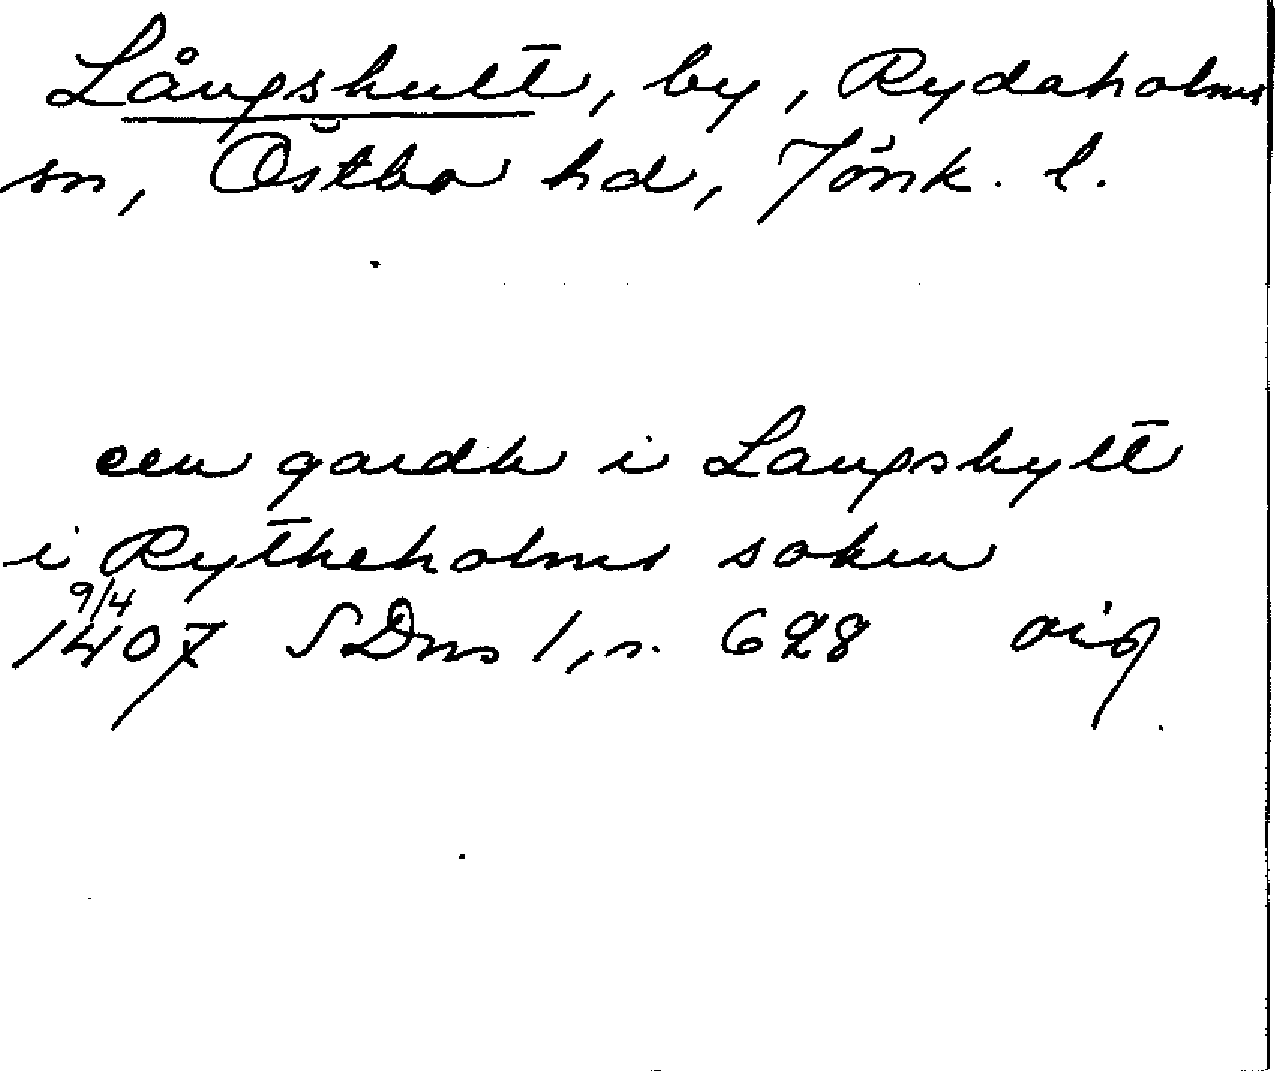 Långshult, by, Rydaholms
sn, Östbo hd, Jönk. l.
een gardh i Langshylt
i Rytheholms soken
9/4
1407 SDns 1, s. 628 orig